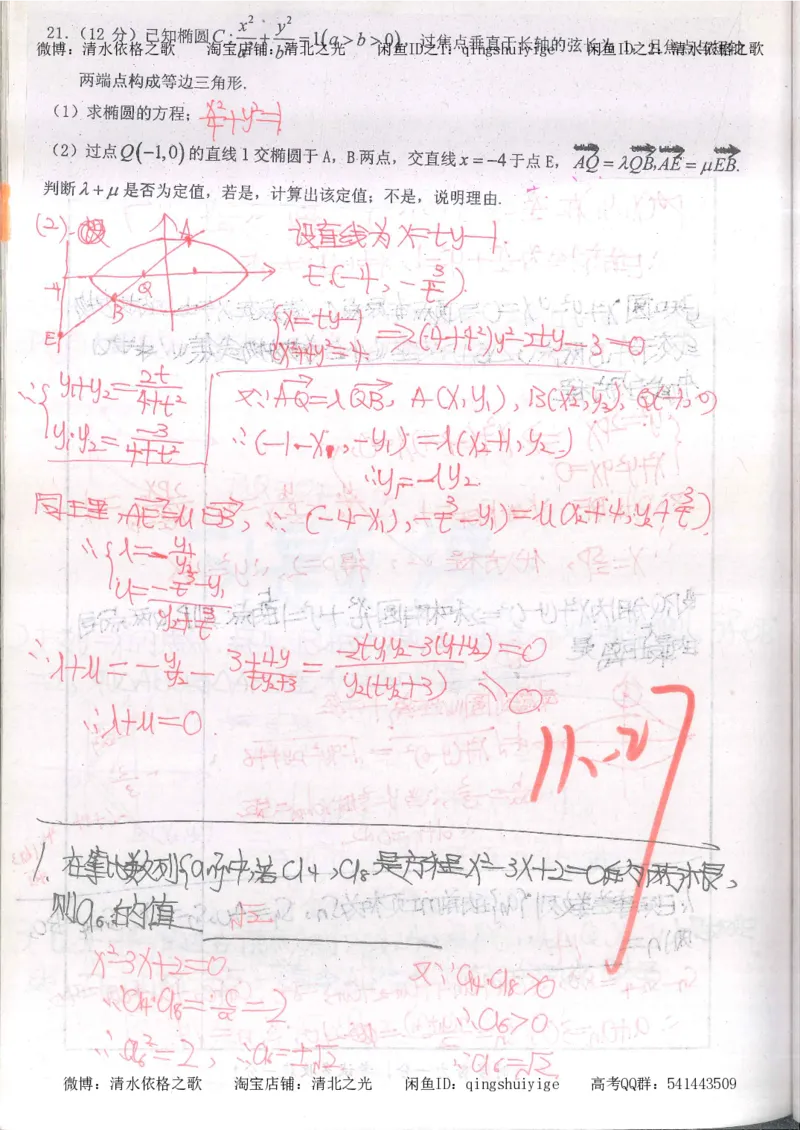 21.（12 分）已知椭圆C: x²/a² + y²/b² =1(a>b>0)，过焦点垂直于长轴的弦长为 1，且焦点与短轴
微博：清水依格之歌 淘宝店铺：清北之光 闲鱼ID之1：qingshuiyige 闲鱼ID之2：清水依格之歌
两端点构成等边三角形.
（1）求椭圆的方程； x²/4+y²=1
（2）过点Q(-1,0)的直线 l 交椭圆于 A，B 两点，交直线x=-4于点 E，AQ=λQB,AE=μEB.
判断λ+μ是否为定值，若是，计算出该定值；不是，说明理由.
(2)
A
Q
-4
B
E
设直线为 x=ty-1.
E(-4, -3/t).
{x=ty-1
x²+4y²=4. ⇒(4+t²)y²-2ty-3=0
∴{y₁+y₂=2t/(4+t²)
y₁·y₂=-3/(4+t²)
又∵AQ=λQB, A(x₁,y₁), B(x₂,y₂), Q(-1,0)
∴(-1-x₁,-y₁)=λ(x₂+1,y₂)
∴y₁=-λy₂
同理,AE=μEB, ∴(-4-x₁),-3/t-y₁)=μ(x₂+4,y₂+3/t)
∴{λ=-y₁/y₂
μ=(-3/t-y₁)/(y₂+3/t)
∴λ+μ=-y₁/y₂-(3+ty₁)/(ty₂+3)=(-2ty₁y₂-3(y₁+y₂))/(y₂(ty₂+3))=0
∴λ+μ=0
11.27
1. 在等比数列{an}中,若a4,a8是方程x²-3x+2=0的两根,
则a6的值 √2
x²-3x+2=0
∴a4·a8=c/a=2
∴a6²=2, ∴a6=±√2
又∵a4·a8>0
∴a6>0
∴a6=√2
微博：清水依格之歌 淘宝店铺：清北之光 闲鱼ID：qingshuiyige 高考QQ群：541443509